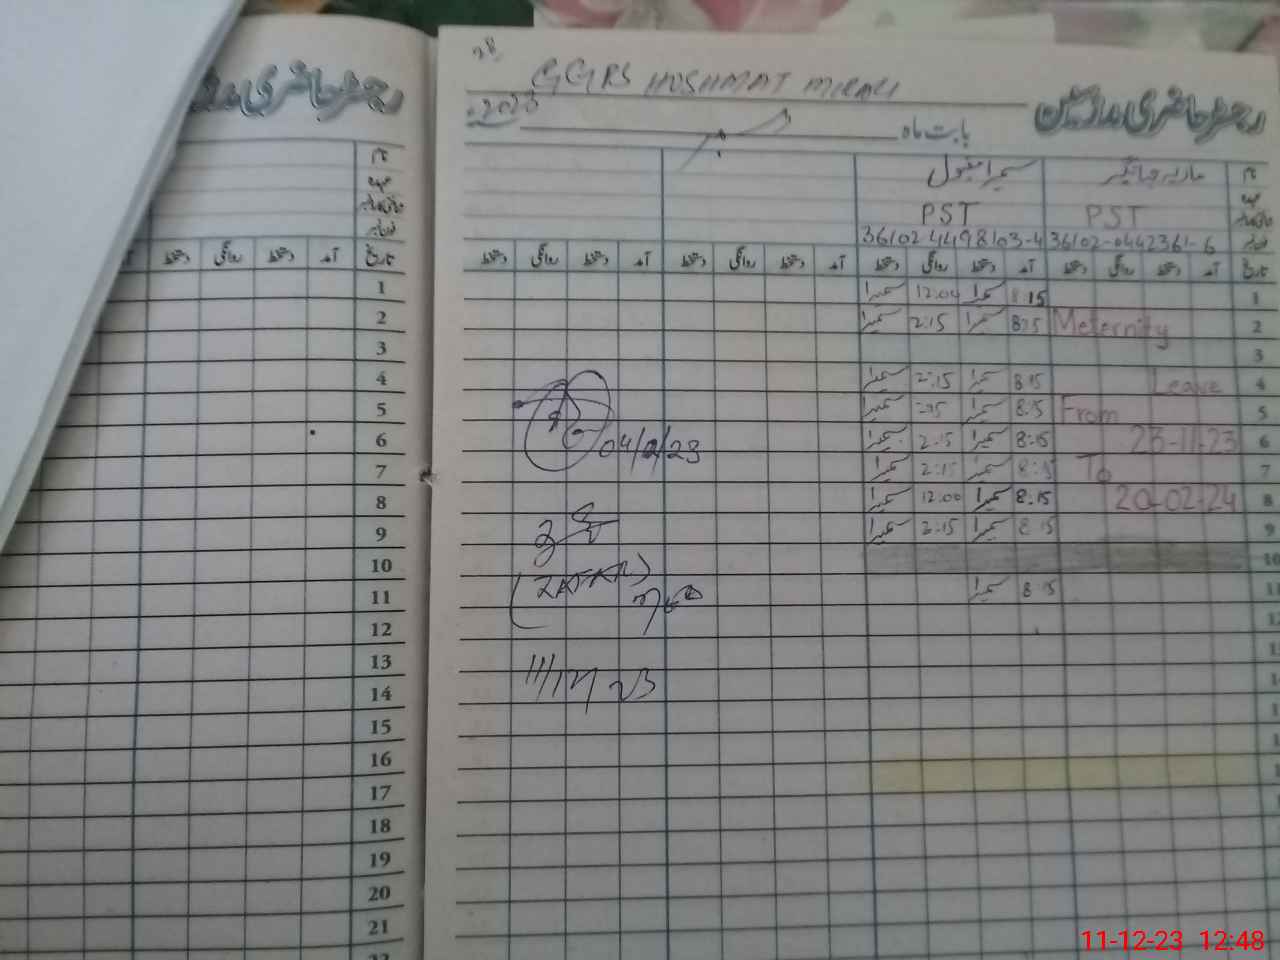 28
GGPS HOSHMAT MIRALI
رجسٹر حاضری ملازمین
2023
بابت ماہ دسمبر
نام ماریہ جہانگیر سمیرا مقبول
عہدہ PST PST
36102-0442361-6 36102-4498103-4
تاریخ آمد دستخط روانگی دستخط آمد دستخط روانگی دستخط آمد دستخط روانگی دستخط آمد دستخط روانگی دستخط
1 8:15 سمیرا 12:00 سمیرا
2 Meternity 8:15 سمیرا 2:15 سمیرا
3
4 Leave 8:15 سمیرا 2:15 سمیرا
5 From 8:15 سمیرا 2:15 سمیرا
6 23-11-23 8:15 سمیرا 2:15 سمیرا
7 To 8:15 سمیرا 2:15 سمیرا
8 20-02-24 8:15 سمیرا 12:00 سمیرا
9 8:15 سمیرا 2:15 سمیرا
10
11 8:15 سمیرا
04/12/23
(ZAFAR)
11/12/23
رجسٹر حاضری ملازمین
نام
عہدہ
تاریخ آمد دستخط روانگی دستخط
1
2
3
4
5
6
7
8
9
10
11
12
13
14
15
16
17
18
19
20
21
22
11-12-23 12:48